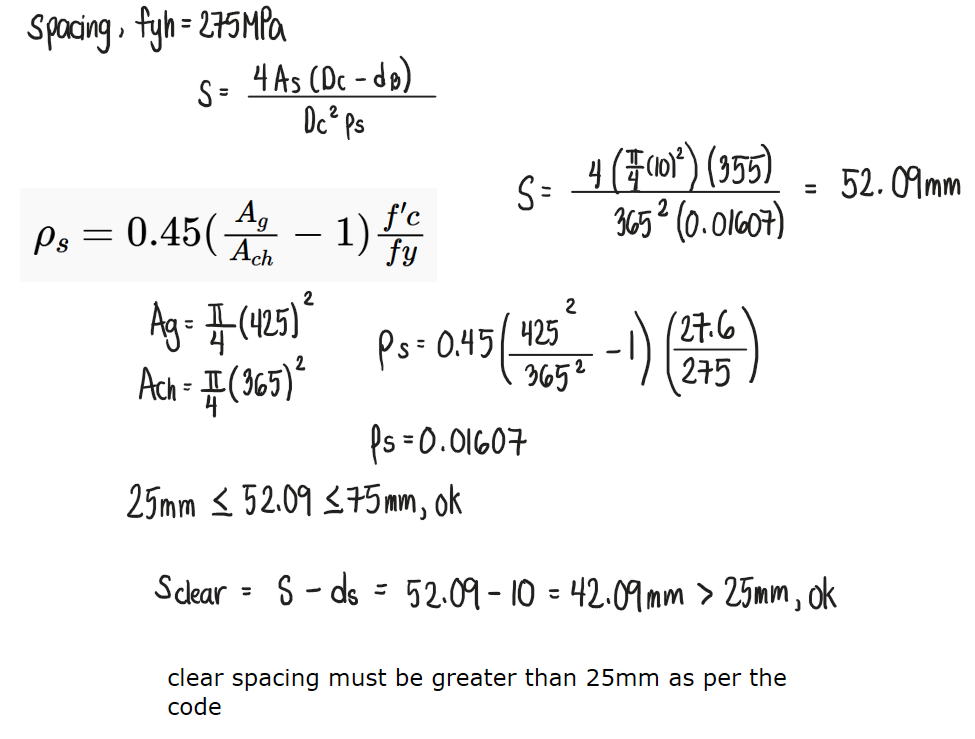 Spacing, fyh = 275MPa
S = 4As (Dc - dB) / Dc² ρs
S = 4 (π/4 (10)²) (355) / 365² (0.01607) = 52.09mm
ρs = 0.45(Ag/Ach − 1) f'c/fy
Ag = π/4 (425)²
Ach = π/4 (365)²
ρs = 0.45 (425²/365² - 1) (27.6/275)
ρs = 0.01607
25mm ≤ 52.09 ≤ 75mm, ok
Sclear = S - ds = 52.09 - 10 = 42.09mm > 25mm, ok
clear spacing must be greater than 25mm as per the
code